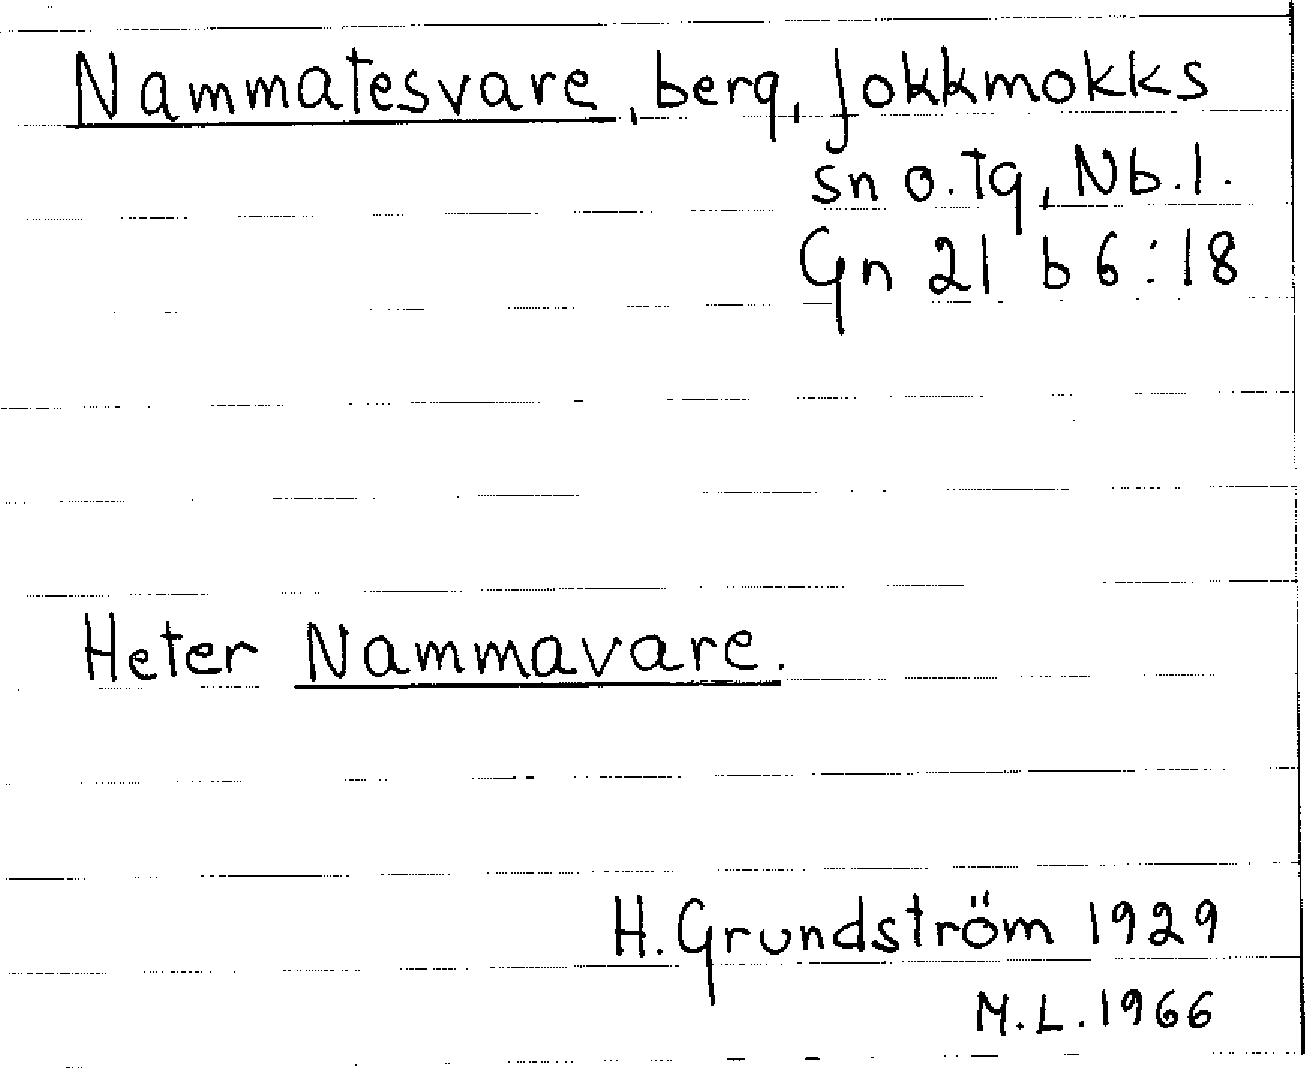 Nammatesvare, berg, Jokkmokks
sn o. tg, Nb.l.
Gn 21 b 6:18
Heter Nammavare.
H. Grundström 1929
M.L. 1966